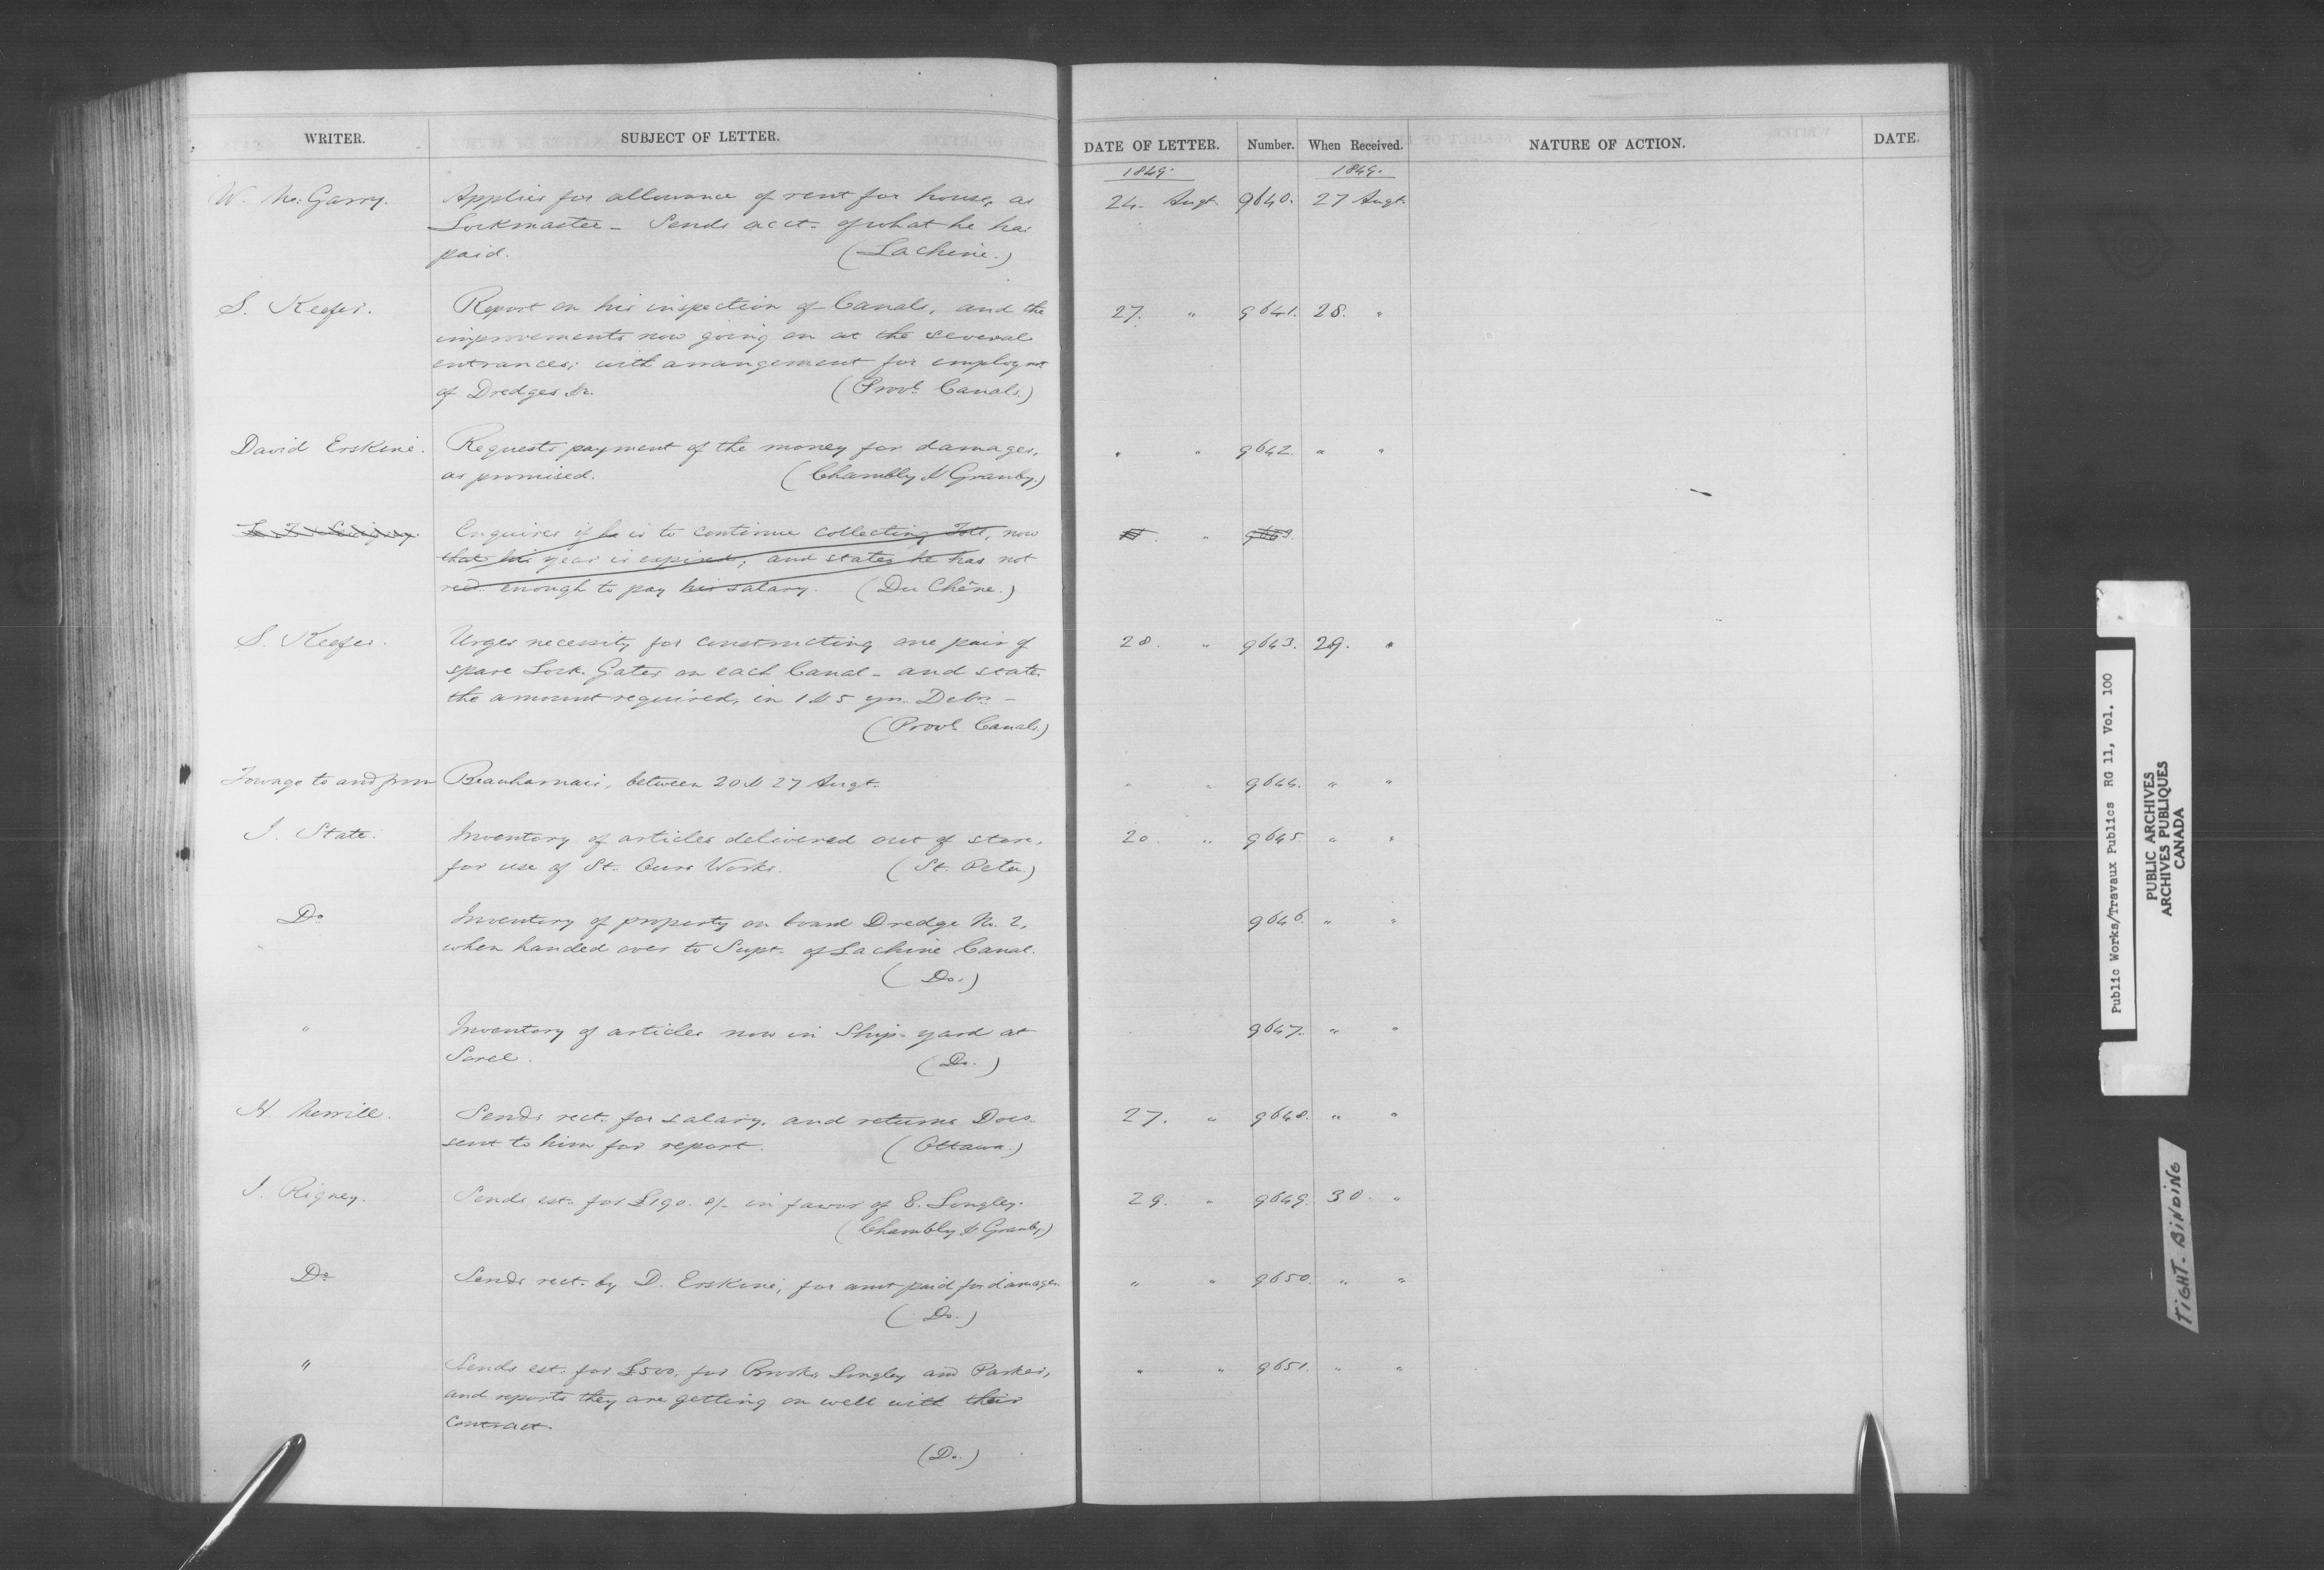 WRITER. SUBJECT OF LETTER. DATE OF LETTER. Number. When Received. NATURE OF ACTION. DATE.
1849. 1849.
W. Mc. Garry. Applies for allowance of rent for house, as 24. Augt. 9640. 27 Augt.
Lockmaster - Sends acct. of what he has
paid. (Lachine.)
S. Keefer. Report on his inspection of Canals, and the 27. " 9641. 28. "
improvements now going on at the several
entrances; with arrangement for employmt.
of Dredges &c. (Provl. Canals.)
David Erskine. Requests payment of the money for damages, " " 9642. " "
as promised. (Chambly & Granby.)
Enquires if he is to continue collecting Toll, now " 9643.
that his year is expired, and states he has not
recd. enough to pay his salary. (Du Chêne.)
S. Keefer. Urges necessity for constructing one pair of 28. " 9643. 29. "
spare Lock Gates on each Canal - and states
the amount required, in 1 & 5 yrs. Debs. -
(Provl. Canals.)
Towage to and from Beauharnais, between 20 & 27 Augt. " " 9644. " "
J. State. Inventory of articles delivered out of store, 20. " 9645. " "
for use of St. Ours Works. (St. Peter.)
Do. Inventory of property on board Dredge No. 2, 9646. " "
when handed over to Supt. of Lachine Canal.
(Do.)
" Inventory of articles now in Ship-yard at 9647. " "
Sorel. (Do.)
H. Merrill. Sends rect. for salary, and returns Docs. 27. " 9648. " "
sent to him for report. (Ottawa.)
J. Rigney. Sends est. for £190. 8/- in favor of E. Longley. 29. " 9649. 30. "
(Chambly & Granby.)
Do. Sends rect. by D. Erskine, for amt paid for damages. " " 9650. " "
(Do.)
" Sends est. for £500, for Brooks, Longley and Parker, " " 9651. " "
and reports they are getting on well with their
contract.
(Do.)
Public Works/Travaux Publics RG 11, Vol. 100
PUBLIC ARCHIVES
ARCHIVES PUBLIQUES
CANADA
TIGHT-BINDING